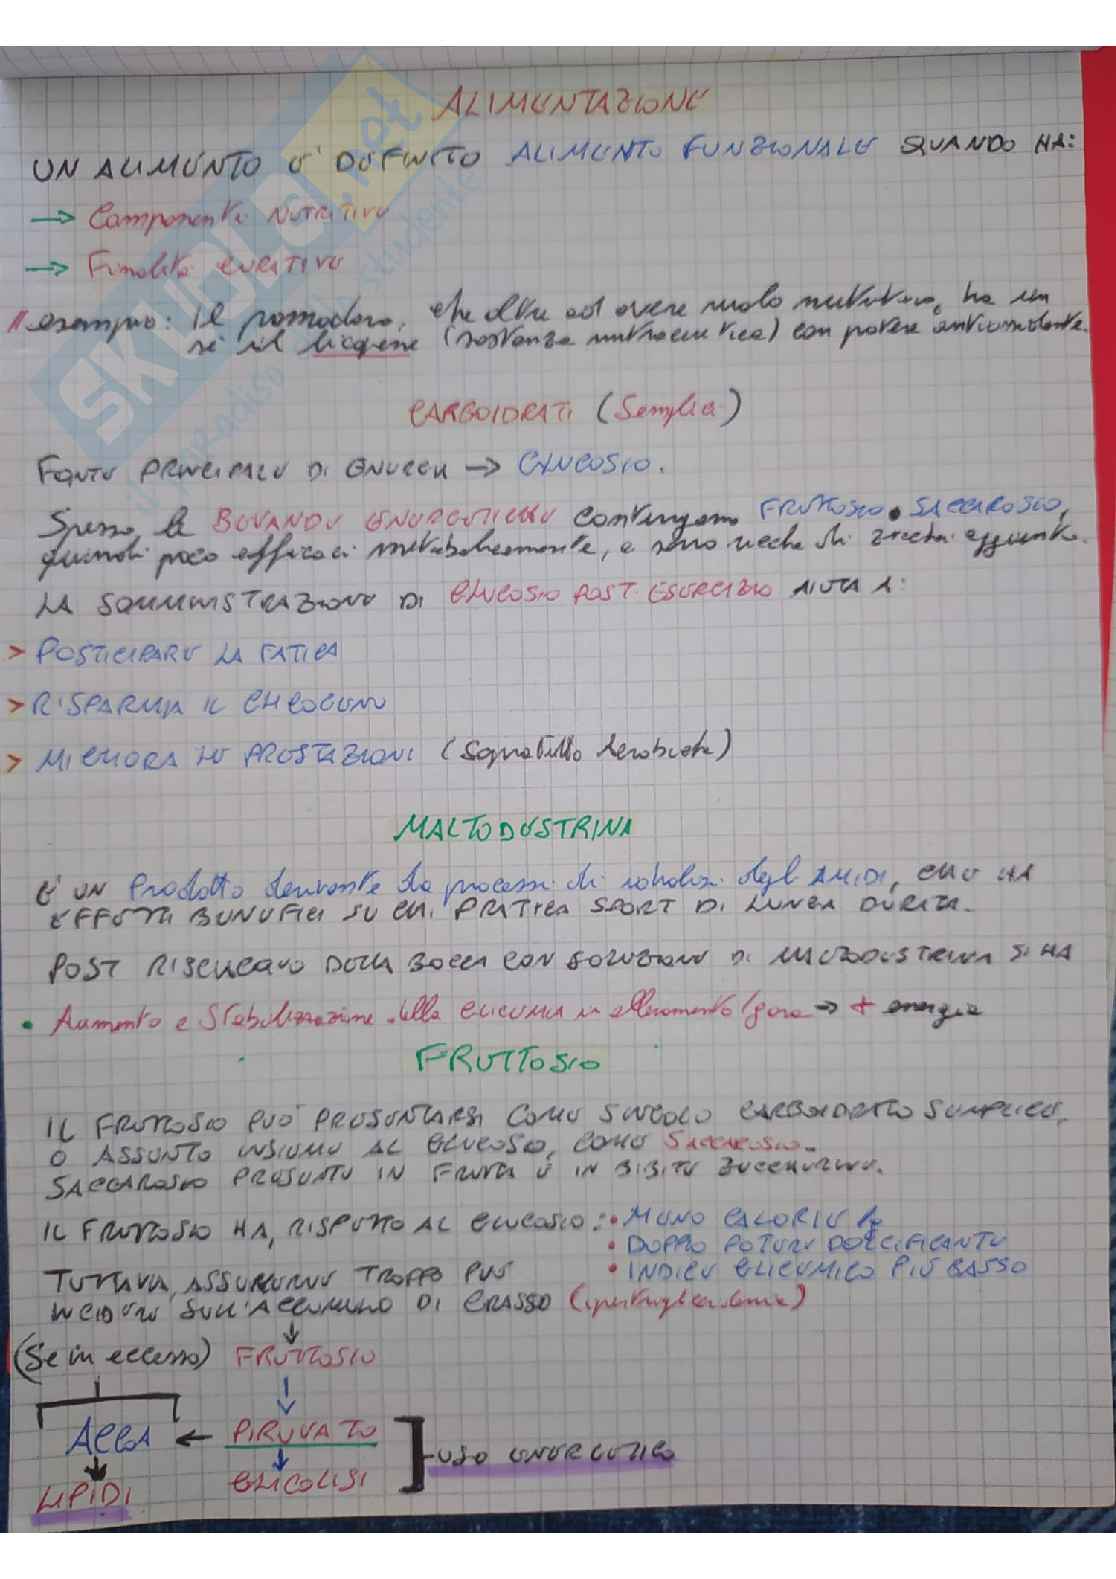 ALIMENTAZIONE
UN ALIMENTO E' DEFINITO ALIMENTO FUNZIONALE QUANDO HA:
→ Componente NUTRITIVO
→ Finalità CURATIVE
// esempio: Il pomodoro, che oltre ad avere ruolo nutritivo, ha in
sé il licopene (sostanza nutraceutica) con potere antiossidante.
CARBOIDRATI (Semplici)
FONTE PRINCIPALE DI ENERGIA → GLUCOSIO.
Spesso, le BEVANDE ENERGETICHE contengono FRUTTOSIO • SACCAROSIO,
quindi poco efficaci metabolicamente, e sono ricche di zuccheri aggiunti.
LA SOMMINISTRAZIONE DI GLUCOSIO POST-ESERCIZIO AIUTA A:
> POSTICIPARE LA FATICA
> RISPARMIA IL GLICOGENO
> MIGLIORA LE PRESTAZIONI (Soprattutto Aerobiche)
MALTODESTRINA
E' UN Prodotto derivante da processi di idrolisi degli AMIDI, CHE HA
EFFETTI BENEFICI SU CHI PRATICA SPORT DI LUNGA DURATA.
POST RISCIACQUO DELLA BOCCA CON SOLUZIONE DI MALTODESTRINA SI HA
• Aumento e Stabilizzazione della GLICEMIA in allenamento/gara → + energia
FRUTTOSIO
IL FRUTTOSIO PUO' PRESENTARSI COME SINGOLO CARBOIDRATO SEMPLICE,
O ASSUNTO INSIEME AL GLUCOSIO, COME SACCAROSIO.
SACCAROSIO PRESENTE IN FRUTTA E IN BIBITE ZUCCHERINE.
IL FRUTTOSIO HA, RISPETTO AL GLUCOSIO: • MENO CALORIE
• DOPPIO POTERE DOLCIFICANTE
• INDICE GLICEMICO PIÙ BASSO
TUTTAVIA, ASSUMERNE TROPPO PUO'
INCIDERE SULL'ACCUMULO DI GRASSO (ipertrigliceridemia)
(Se in eccesso) FRUTTOSIO
ACCOA ← PIRUVATO
USO ENERGETICO
LIPIDI GLICOLISI
SKUOLA.net